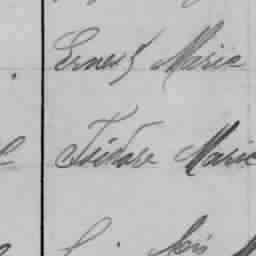 Ernest Marie
Isidore Marie